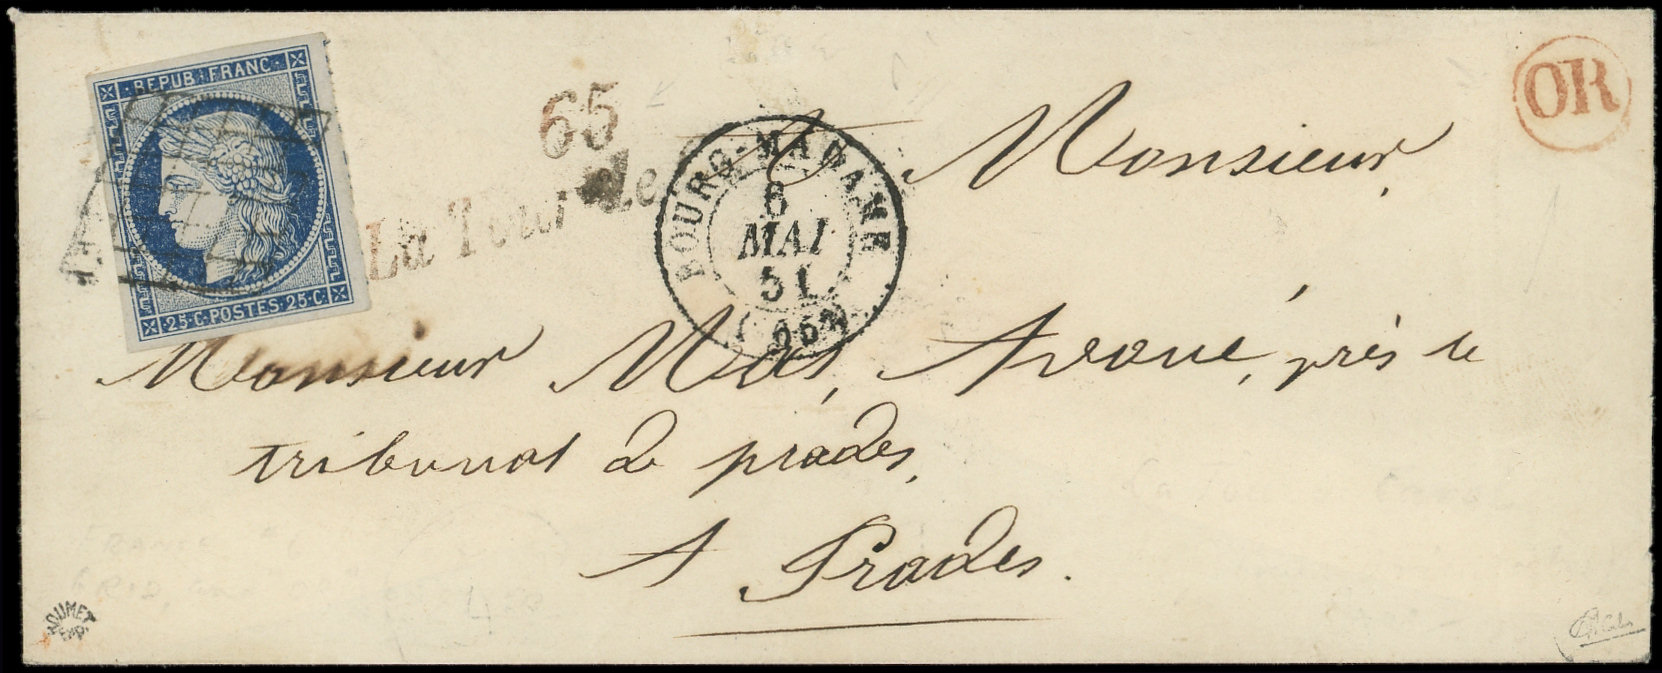 REPUB·FRANC·
·25·C·POSTES·25·C·
65
La Tour de
BOURG-MADAME
6
MAI
51
(65)
OR
A Monsieur,
Monsieur Mas, Avoué, près le
tribunal de prades,
A Prades.
ROUMET
Exp.